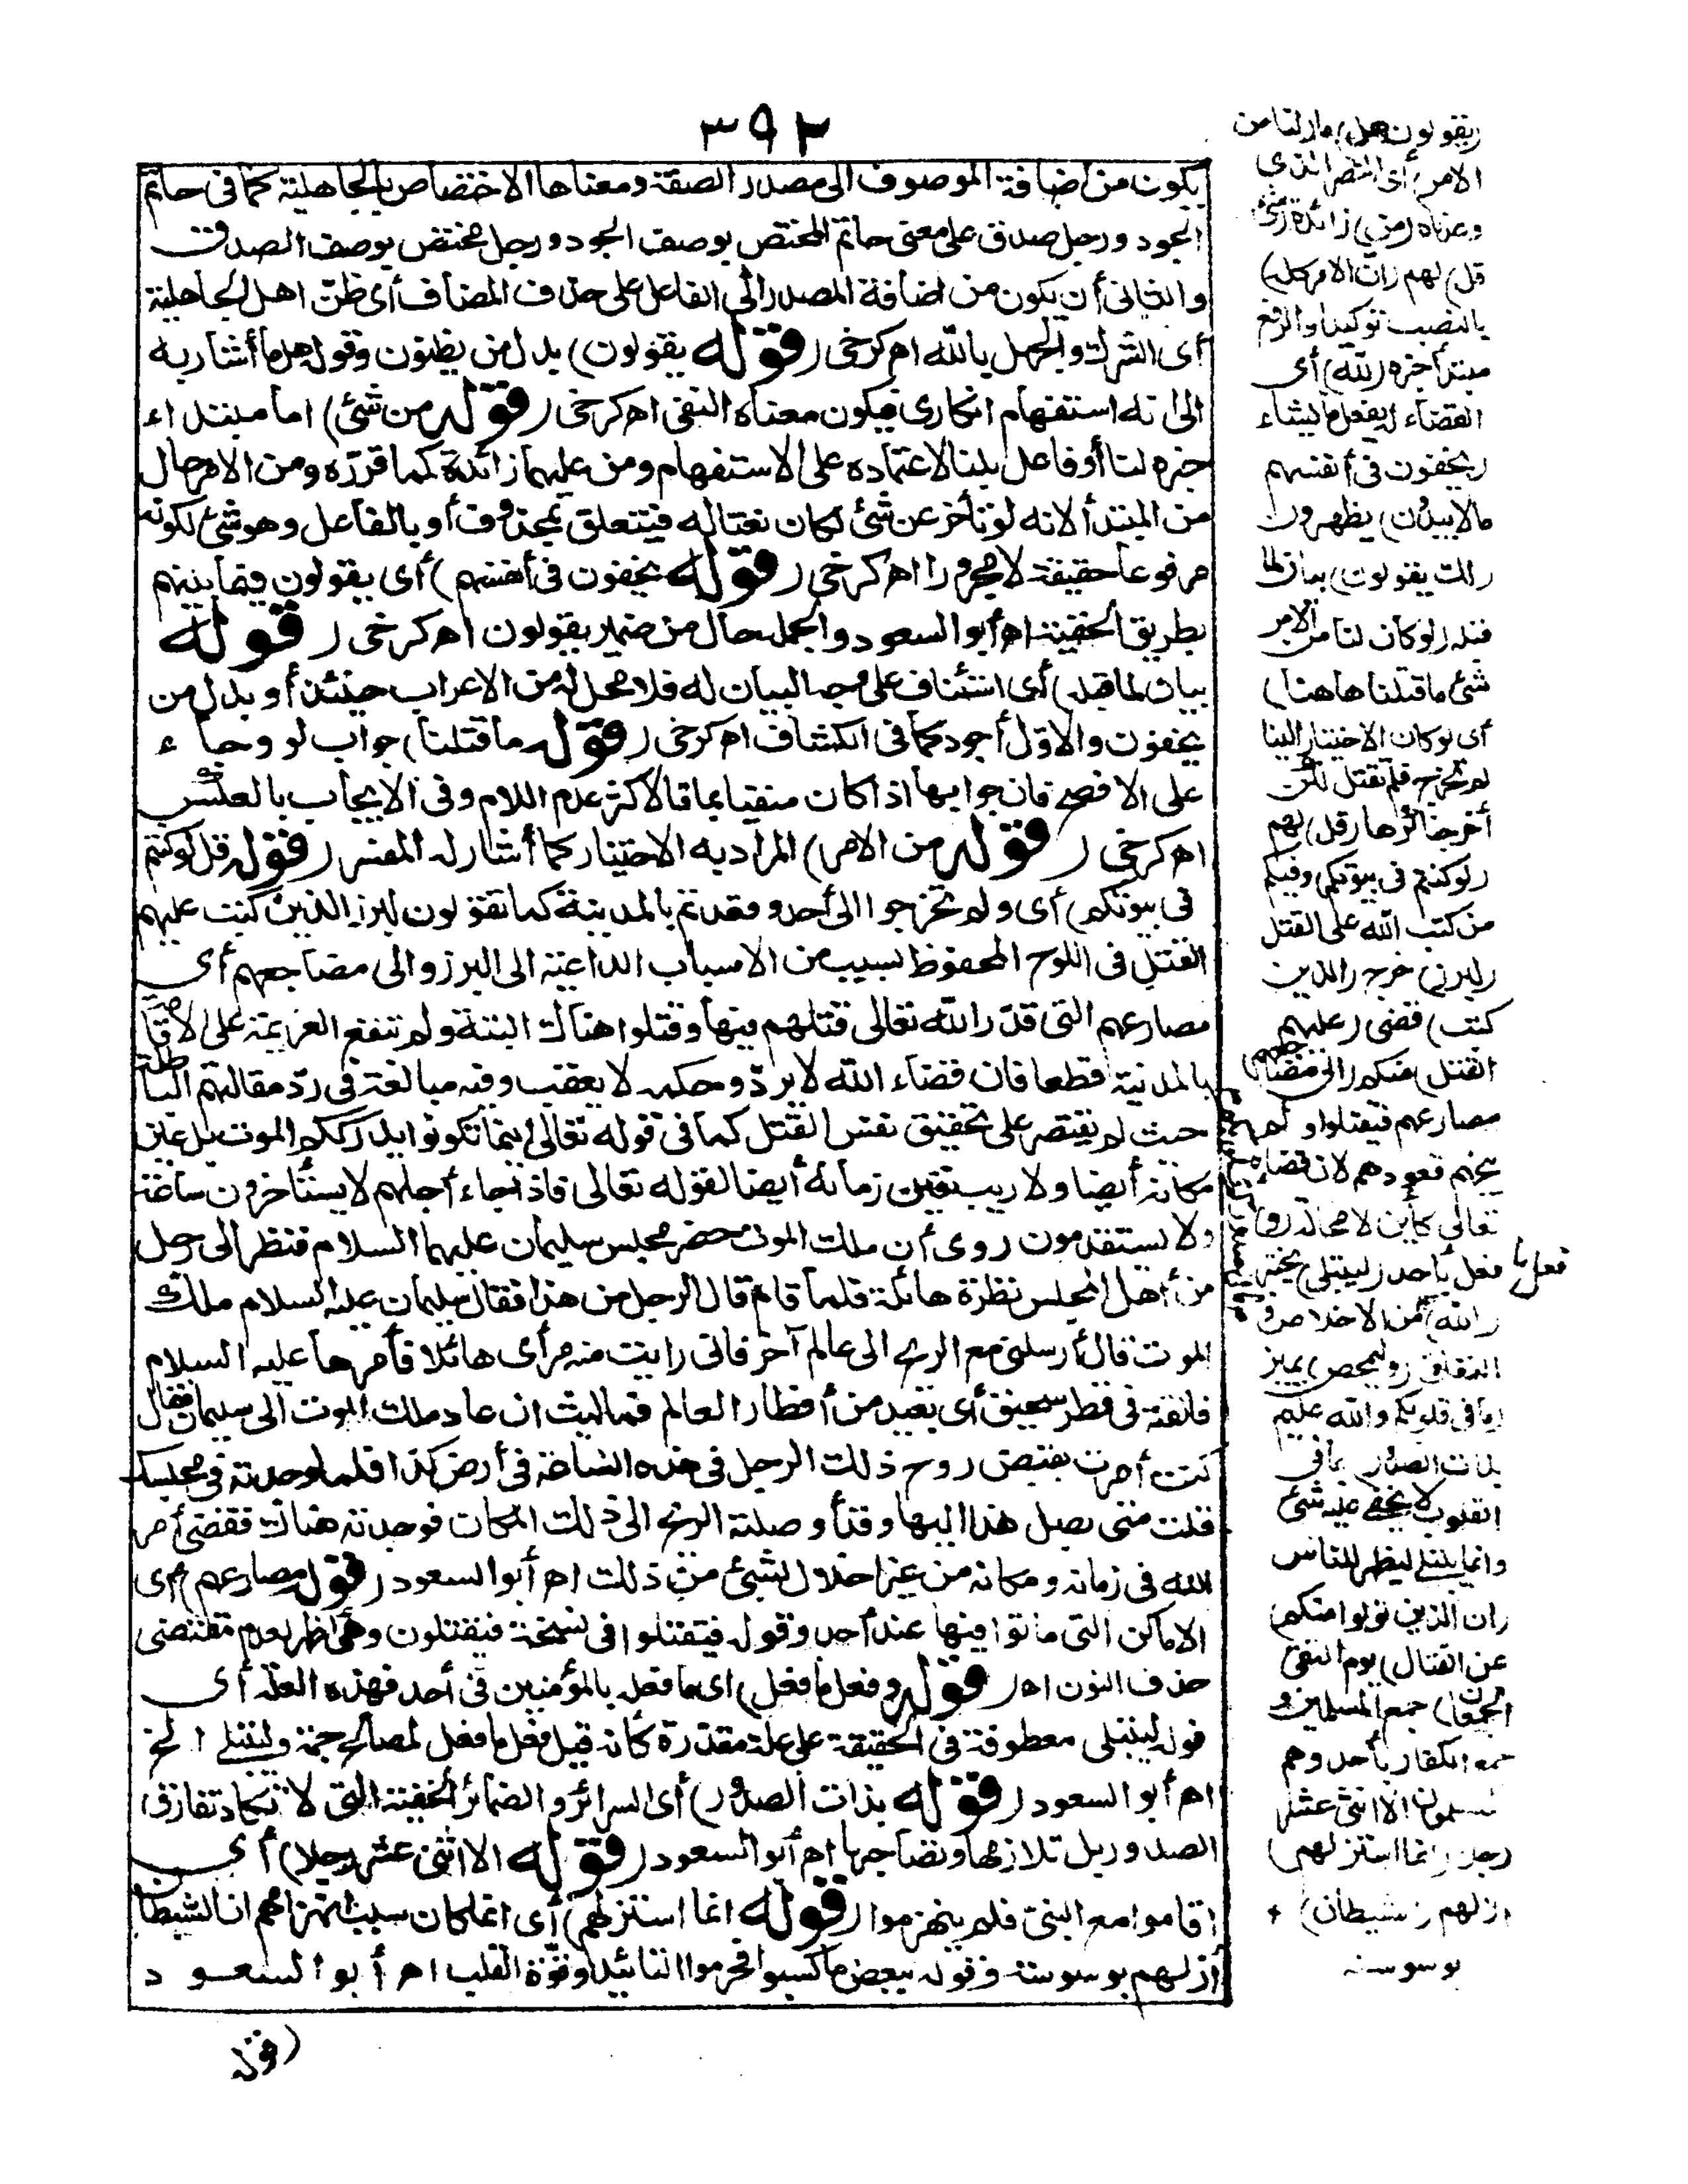 ٣٩٢
يكون من اضافة الموصوف الى مصدر الصفة ومعناها الاختصاص بالجاهلية كما فى حاتم
الجود ورجل صدق على معنى حاتم المختص بوصف الجود ورجل مختص بوصف الصدق
والثانى أن يكون من اضافة المصدر الى الفاعل على حذف المضاف أى ظن اهل الجاهلية
أى الشرك والجهل بالله اه كرخى (قوله يقولون) بدل من يظنون وقوله هل ما أشار به
الى انه استفهام انكارى فيكون معناه النفى اه كرخى (قوله من شئ) اما مبتدا ء
خبره لنا أو فاعل بلنا لاعتماده على الاستفهام ومن عليهما زائدة كما قرره ومن الامر حال
من المبتدأ لانه لو تأخر عن شئ لكان نعتا له فيتعلق بمحذوف أو بالفاعل وهو شئ لكونه
مرفوعا حقيقة لا مجرورا اه كرخى (قوله يخفون فى أنفسهم) أى يقولون فيما بينهم
بطريق الخفية اه أبو السعود والجملة حال من ضمير يقولون اه كرخى (قوله
بيان لما قبله) أى استئناف على وجه البيان له فلا محل له من الاعراب حينئذ أو بدل من
يخفون والاول أجود كما فى الكشاف اه كرخى (قوله ما قتلنا) جواب لو وجا ء
على الافصح فان جوابها اذا كان منفيا بما فالاكثر عدم اللام وفى الايجاب بالعكس
اه كرخى (قوله من الامر) المراد به الاختيار كما أشار له المفسر (قوله قل لو كنتم
فى بيوتكم) أى ولم تخرجوا الى أحد وقعدتم بالمدينة كما تقولون لبرز الذين كتب عليهم
القتل فى اللوح المحفوظ بسبب من الاسباب الداعية الى البرز والى مضاجعهم أى
مصارعهم التى قدر الله تعالى قتلهم فيها وقتلوا هناك البتة ولم تنفع العزيمة على الاقامة
بالمدينة قطعا فان قضاء الله لا يرد وحكمه لا يعقب وفيه مبالغة فى رد مقالتهم الباطلة
حيث لم يقتصر على تحقيق نفس القتل كما فى قوله تعالى اينما تكونوا يدرككم الموت بل عين
مكانه أيضا ولا ريب بتعين زمانه أيضا لقوله تعالى فاذا جاء أجلهم لا يستأخرون ساعة
ولا يستقدمون روى أن ملك الموت حضر مجلس سليمان عليهما السلام فنظر الى رجل
من أهل المجلس نظرة هائلة فلما قام قال الرجل من هذا فقال سليمان عليه السلام ملك
الموت قال أرسلنى مع الريح الى عالم آخر فانى رايت منه مرأى هائلا فأمرها عليه السلام
فالقته فى قطر سحيق أى بعيد من أقطار العالم فما لبث ان عاد ملك الموت الى سليمان فقال
كنت أمرت بقبض روح ذلك الرجل فى هذه الساعة فى أرض كذا فلما وجدته فى مجلسك
قلت متى يصل هذا اليها وقد أوصلته الريح الى ذلك المكان فوجدته هناك فقضى أمر
الله فى زمانه ومكانه من غير اخلال بشئ من ذلك اه أبو السعود (قوله مصارعهم) أى
الاماكن التى ماتوا فيها عند أحد وقوله فيقتلوا فى نسخة فيقتلون وهى اظهر لعدم مقتضى
حذف النون اه (قوله وفعل ما فعل) اى ما فعله بالمؤمنين فى أحد فهذه العلة أى
قوله ليبتلى معطوفة فى الحقيقة على علة مقدرة كأنه قيل فعل ما فعل لمصالح جمة وليبتلى الخ
اه أبو السعود (قوله بذات الصدور) أى السرائر والضمائر الخفية التى لا تكاد تفارق
الصدور بل تلازمها وتصاحبها اه أبو السعود (قوله الا اثنى عشر رجلا) أى
اقاموا مع النبى فلم ينهزموا (قوله انما استزلهم) أى انما كان سبب انهزامهم ان الشيطان
أزلهم بوسوسته وقوله ببعض ما كسبوا فحرموا التائيد وقوة القلب اه أبو السعو د
(قوله
(يقولون هل) ما (لنا من
الامر) أى النصر الذى
وعدناه (من) زائدة (شئ
قل) لهم (ان الامر كله)
بالنصب توكيدا والرفع
مبتدأ خبره (لله) أى
القضاء له يفعل ما يشاء
(يخفون فى أنفسهم
ما لا يبدون) يظهرون
(لك يقولون) بيان لما
قبله (لو كان لنا من الامر
شئ ما قتلنا هاهنا)
أى لو كان الاختيار الينا
لم نخرج فلم نقتل لكن
أخرجنا كرها (قل) لهم
(لو كنتم فى بيوتكم) وفيكم
من كتب الله على القتل
(لبرز) خرج (الذين
كتب) قضى (عليهم
القتل) منكم (الى مضاجعهم)
مصارعهم فيقتلوا ولم
ينجهم قعودهم لان قضاءه
تعالى كائن لا محالة (و)
فعل ما فعل بأحد (ليبتلى) يختبر
(الله) من الاخلاص و
النفاق (وليمحص) يميز
(ما فى قلوبكم والله عليم
بذات الصدور) بما فى
القلوب لا يخفى عليه شئ
وانما يبتلى ليظهر للناس
(ان الذين تولوا منكم)
عن القتال (يوم التقى
الجمعان) جمع المسلمين و
جمع الكفار بأحد وهم
المسلمون الا اثنى عشر
رجلا (انما استزلهم)
ازلهم (الشيطان)
بوسوسته